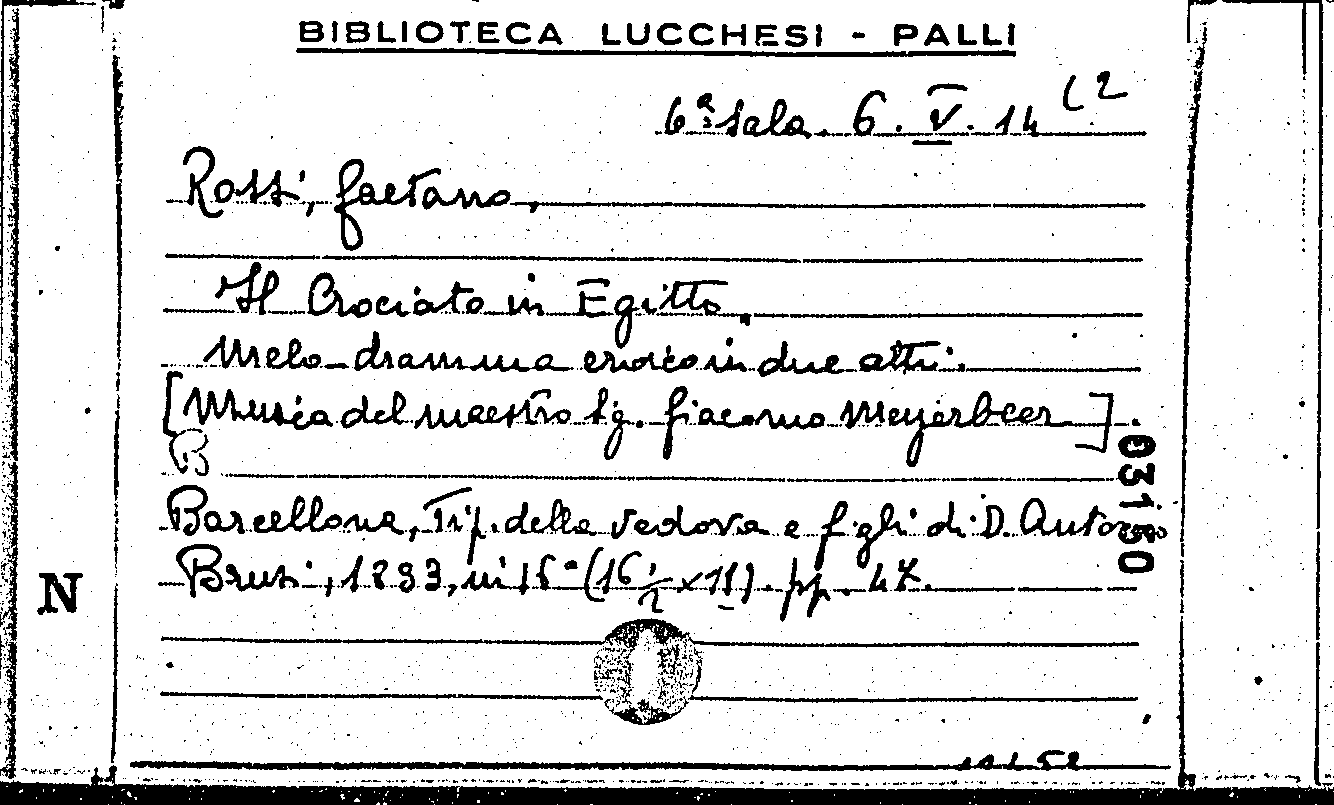 BIBLIOTECA LUCCHESI - PALLI
6ª Sala. 6. V. 14 (2
Rossi, Gaetano,
Il Crociato in Egitto.
Melo-dramma eroico in due atti.
[Musica del maestro Sig. Giacomo Meyerbeer].
B
Barcellona, Tip. della vedova e figli di D. Antonio
Brusi, 1833, in 16° (16 1/2 x 11). pp. 47.
03150
N